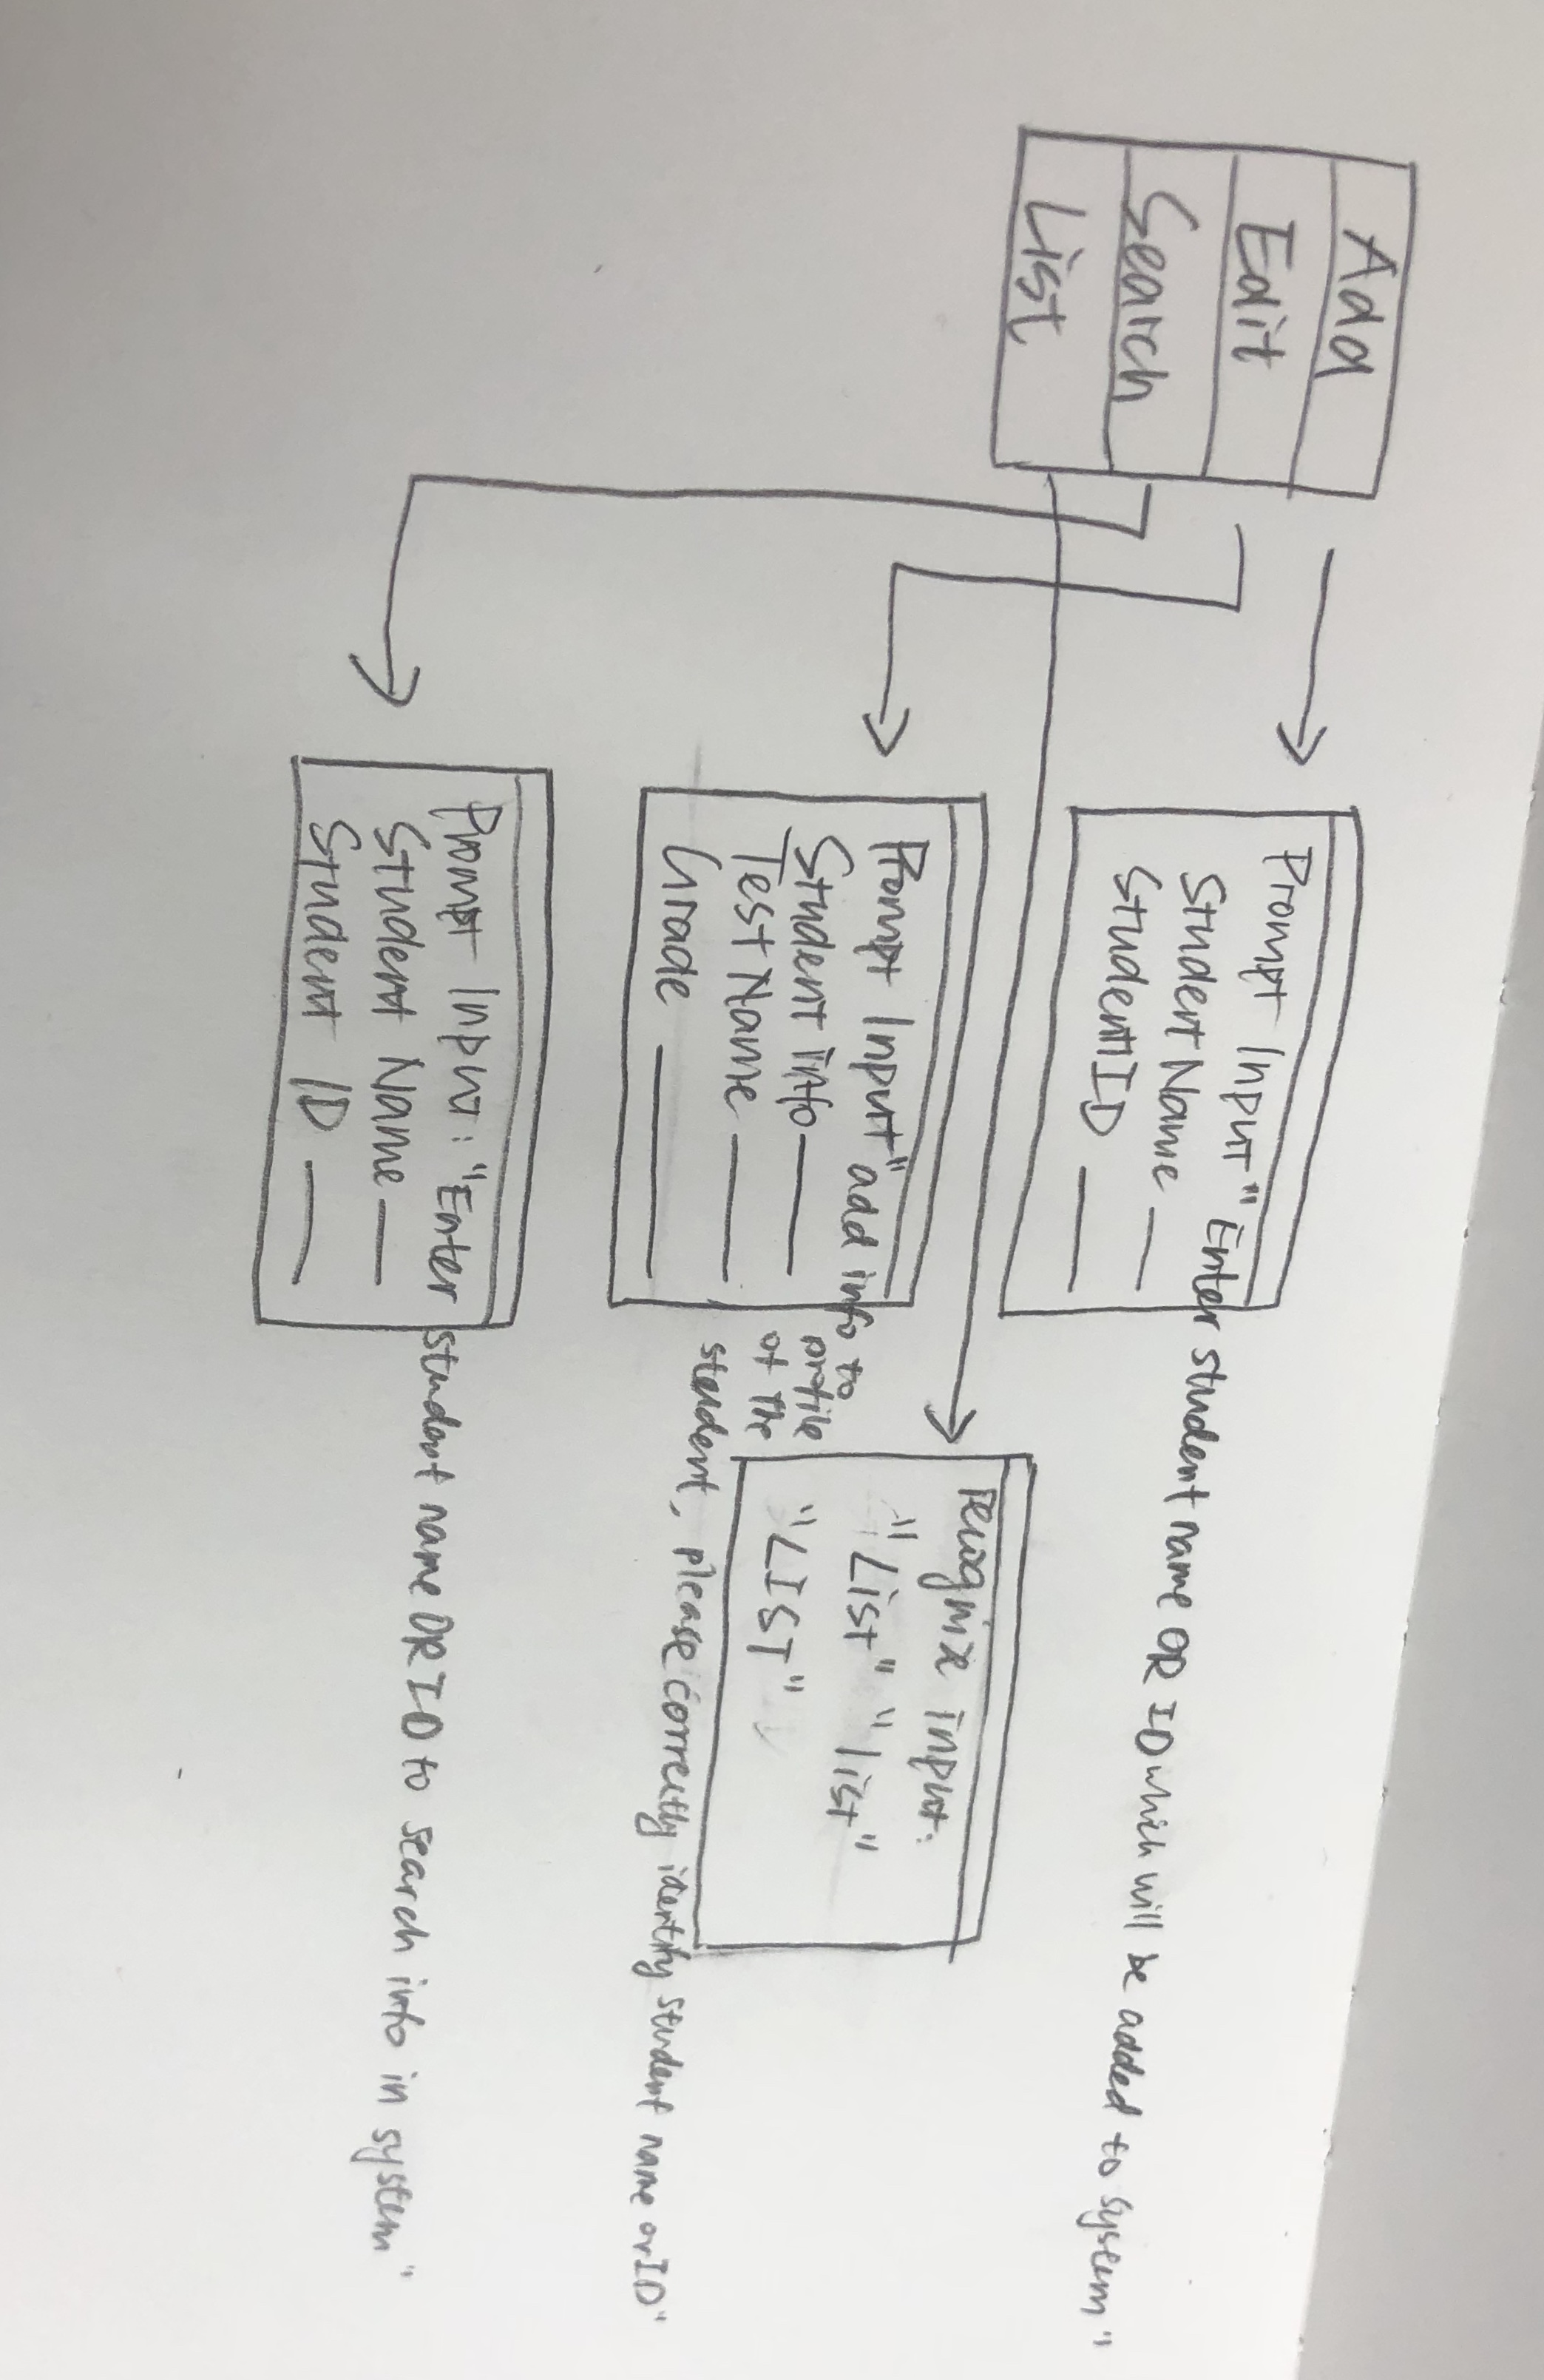 Add
Edit
Search
List
Prompt Input "Enter student name OR ID which will be added to system"
Student Name
Student ID
Prompt Input "add info to
profile
of the
student, please correctly identify student name or ID"
Student info
Test Name
Grade
recognize input:
"List" "list"
"LIST"
Prompt Input: "Enter student name OR ID to search info in system"
Student Name
Student ID